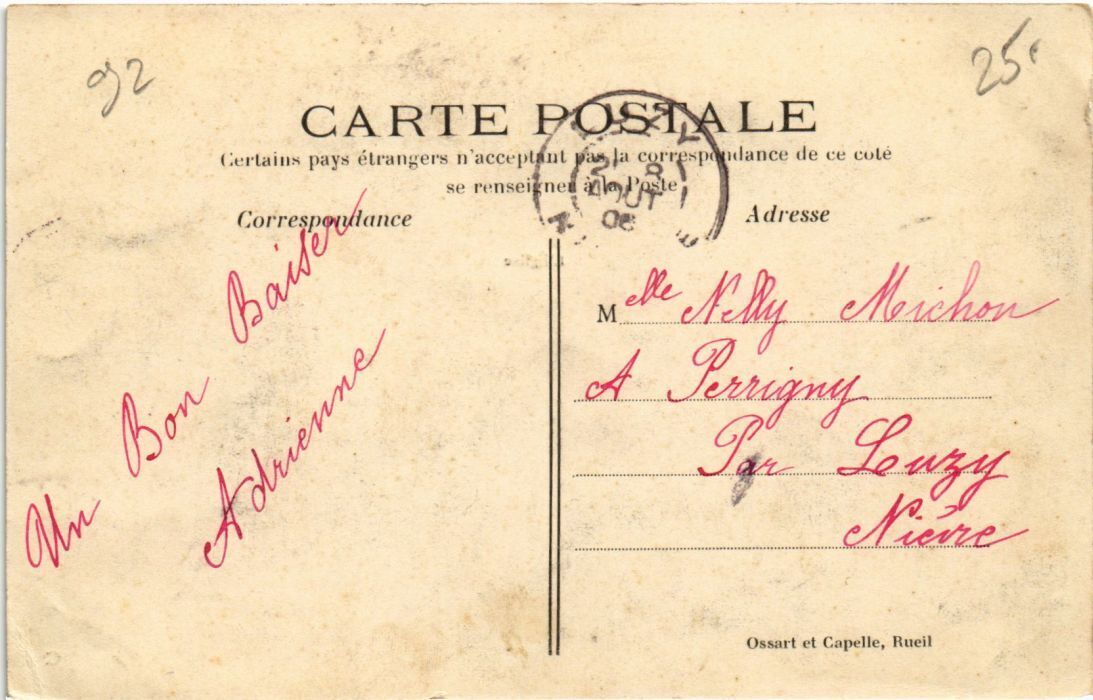 92
25c
CARTE POSTALE
Certains pays étrangers n'acceptent pas la correspondance de ce coté
se renseigner à la Poste
Correspondance
Adresse
LUZY
21 8
AOUT
06
Un Bon Baiser
Adrienne
Melle Nelly Michon
A Perrigny
Par Luzy
Nièvre
Ossart et Capelle, Rueil